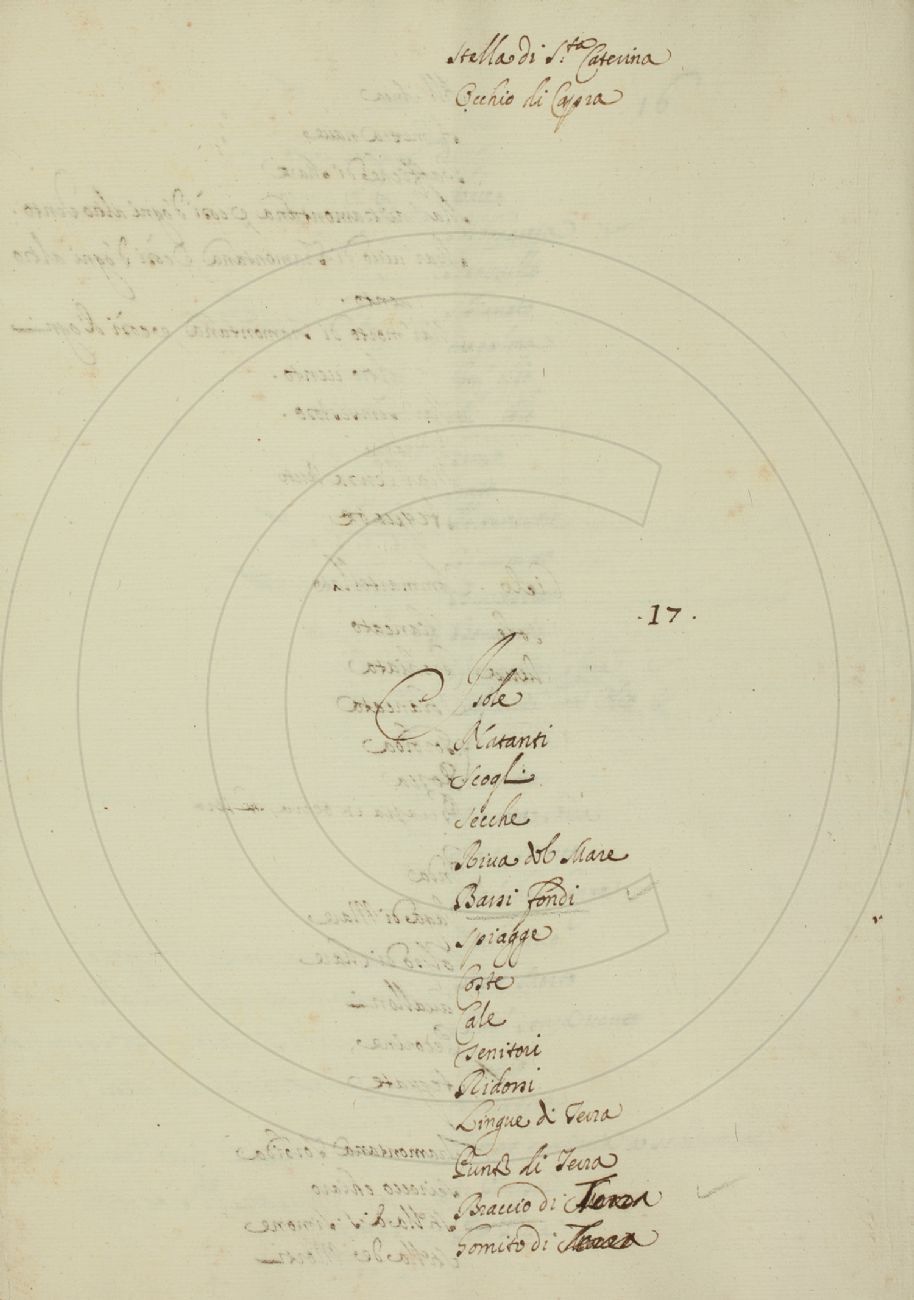 Stella di S.ta Caterina
Occhio di Capra
.17.
Isole
Natanti
Scogli
Secche
Riua del Mare
Bassi fondi
Spiagge
Coste
Cale
Senitori
Ridossi
Lingue di Terra
Punte di Terra
Braccio di Terra
Gomito di Terra